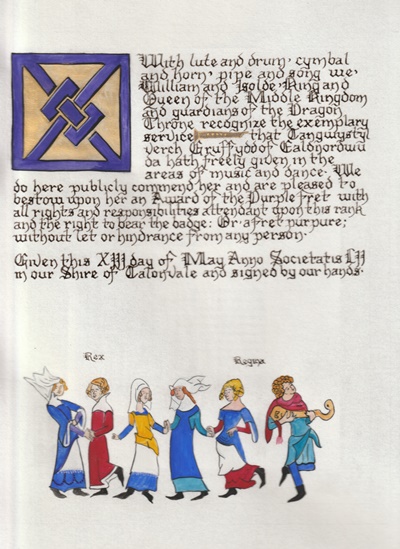 With lute and drum, cymbal
and horn, pipe and song we,
William and Isolde, King and
Queen of the Middle Kingdom
and guardians of the Dragon
Throne recognize the exemplary
service that Tangwystyl
verch Gruffydd of Ealdnordwu
da hath freely given in the
areas of music and dance. We
do here publicly commend her and are pleased to
bestow upon her an Award of the Purple Fret with
all rights and responsibilities attendant upon this rank
and the right to bear the badge: Or a fret purpure;
without let or hindrance from any person.
Given this XIII day of May Anno Societatis LII
in our Shire of Calonvale and signed by our hands.
Rex Regina